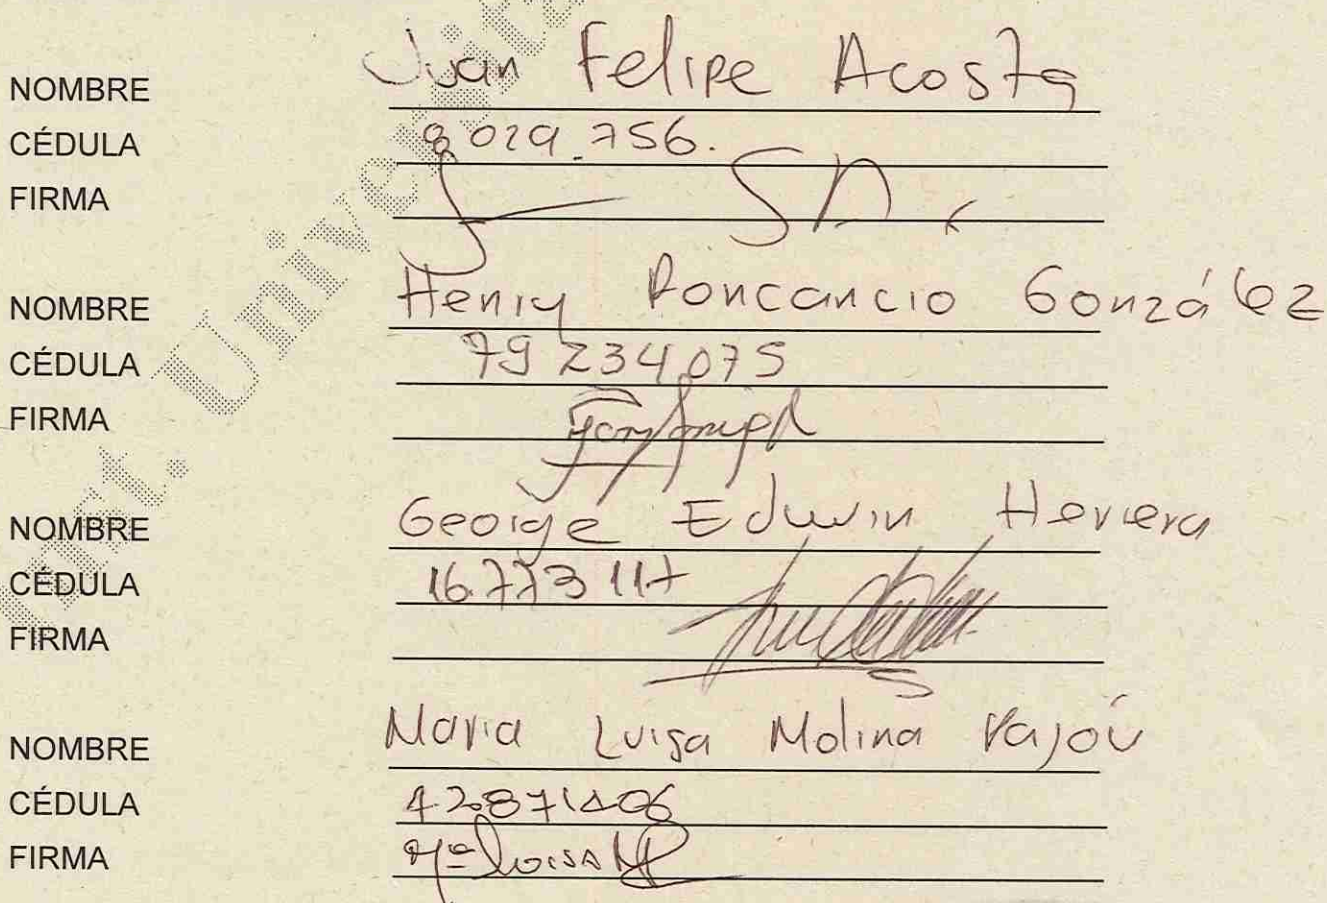 NOMBRE Juan Felipe Acosta
CÉDULA 8 029.756.
FIRMA
NOMBRE Henry Roncancio González
CÉDULA 79 234 075
FIRMA
NOMBRE George Edwin Herrera
CÉDULA 16.773 117
FIRMA
NOMBRE Maria Luisa Molina
CÉDULA 42871406
FIRMA Mª Luisa MP